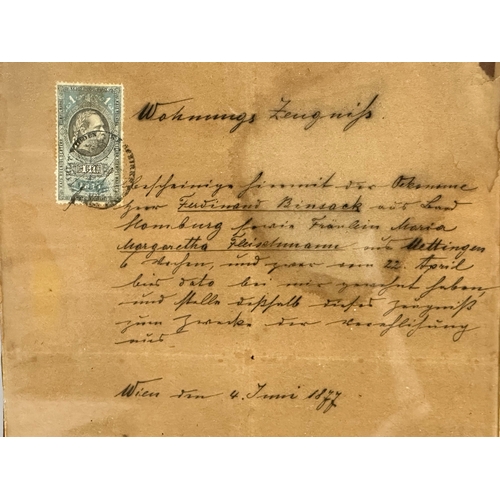 Wohnungs Zeugniß.
Bescheinige hiermit das der Oekonome
Herr Ferdinand Binsack aus Bad
Homburg sowie Fräulein Maria
Margaretha Fleischmann aus Uettingen
6 Wochen, und zwar vom 22. April
bis dato bei mir gewohnt haben,
und stelle deßhalb dieses Zeugniß
zum Zwecke der Verehlichung
aus
Wien den 4. Juni 1877.